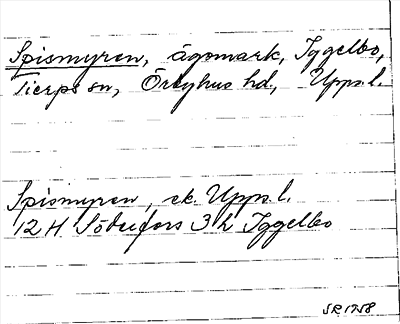 Spismyren, ägomark, Iggelbo,
Tierps sn, Örbyhus hd, Upps.l.
Spismyren, ek. Upps.l.
12 H Söderfors 3 h Iggelbo
S.R. 1958